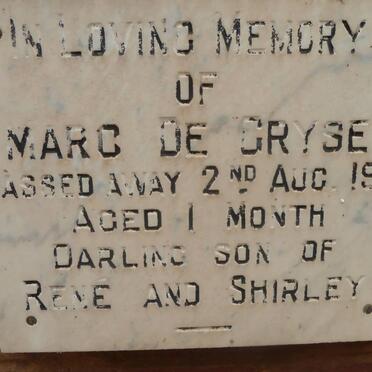 IN LOVING MEMORY
OF
MARC DE GRYSE
PASSED AWAY 2ND AUG. 19
AGED 1 MONTH
DARLING SON OF
RENE AND SHIRLEY